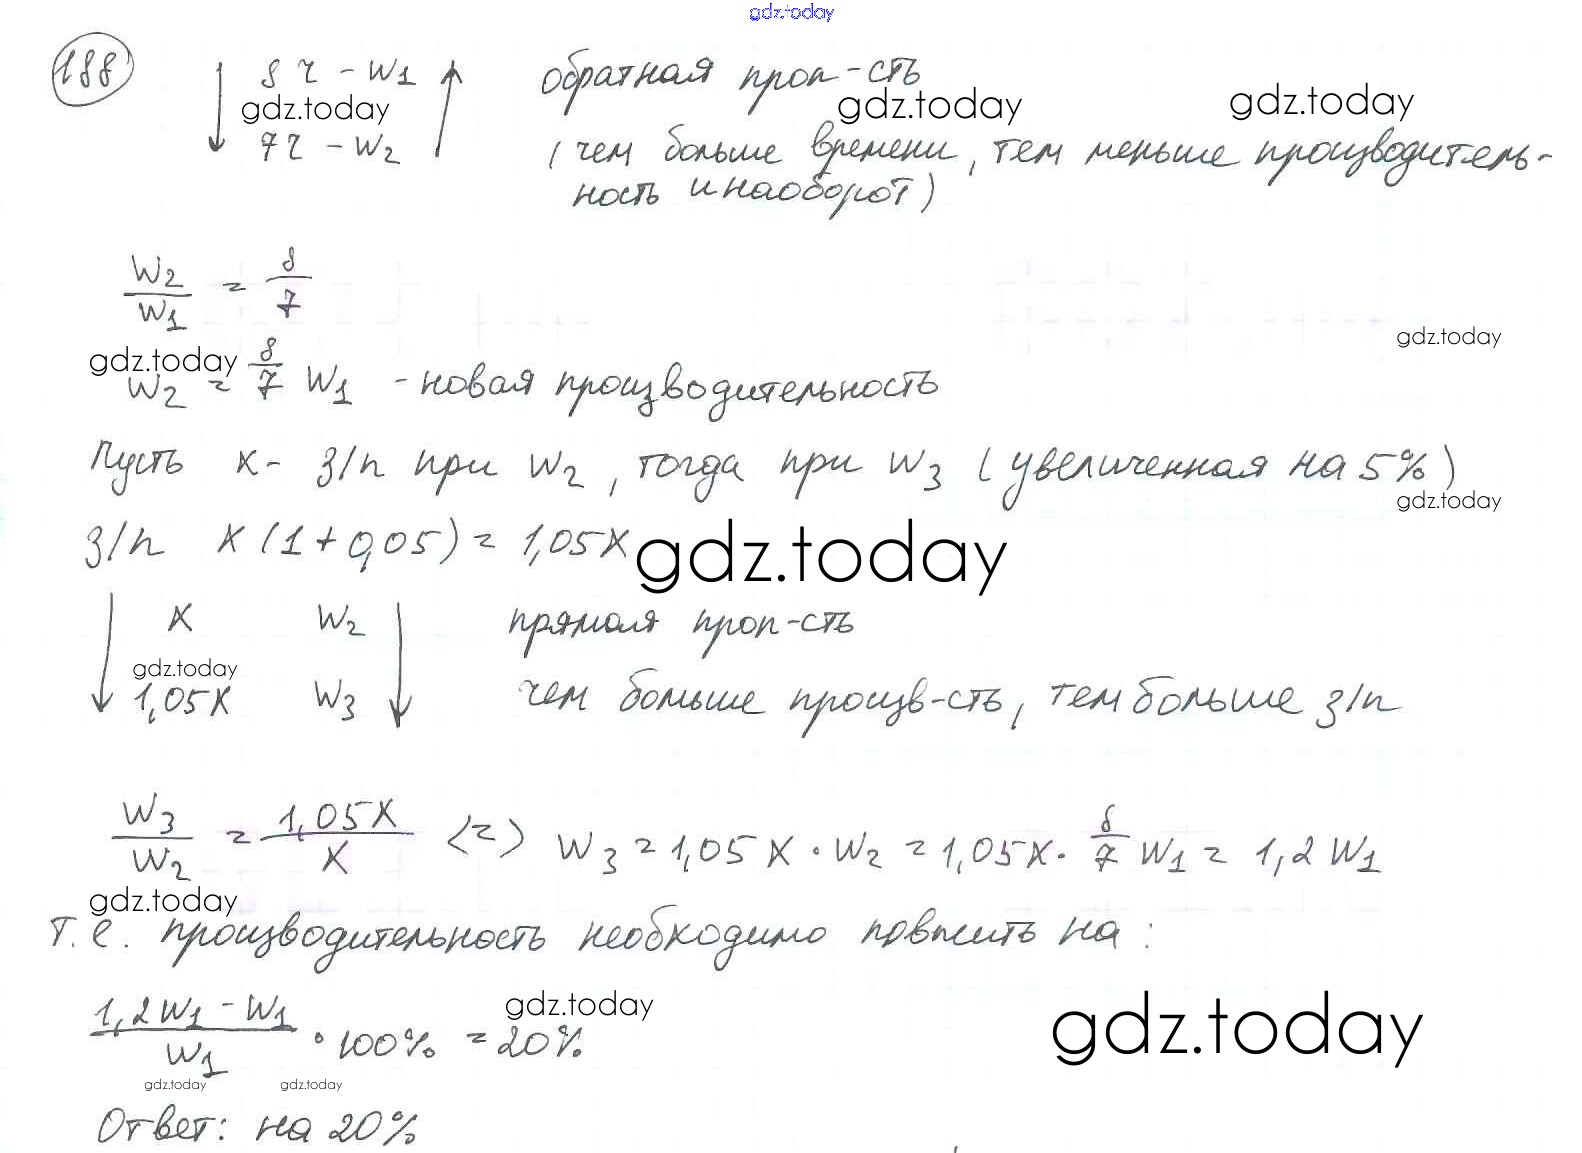 gdz.today
188 8 ч - W1 обратная проп-сть
gdz.today gdz.today gdz.today
7 ч - W2 (чем больше времени, тем меньше производитель-
ность и наоборот)
W2/W1 = 8/7
gdz.today
gdz.today
W2 = 8/7 W1 - новая производительность
Пусть x - з/п при W2, тогда при W3 (увеличенная на 5%)
gdz.today
з/п x(1+0,05) = 1,05x
gdz.today
x W2 прямая проп-сть
gdz.today
1,05x W3 чем больше произв-сть, тем больше з/п
W3/W2 = 1,05x/x <=> W3 = 1,05x · W2 = 1,05x · 8/7 W1 = 1,2 W1
gdz.today
т.е. производительность необходимо повысить на:
gdz.today gdz.today
1,2W1 - W1/W1 · 100% = 20%
gdz.today gdz.today
Ответ: на 20%